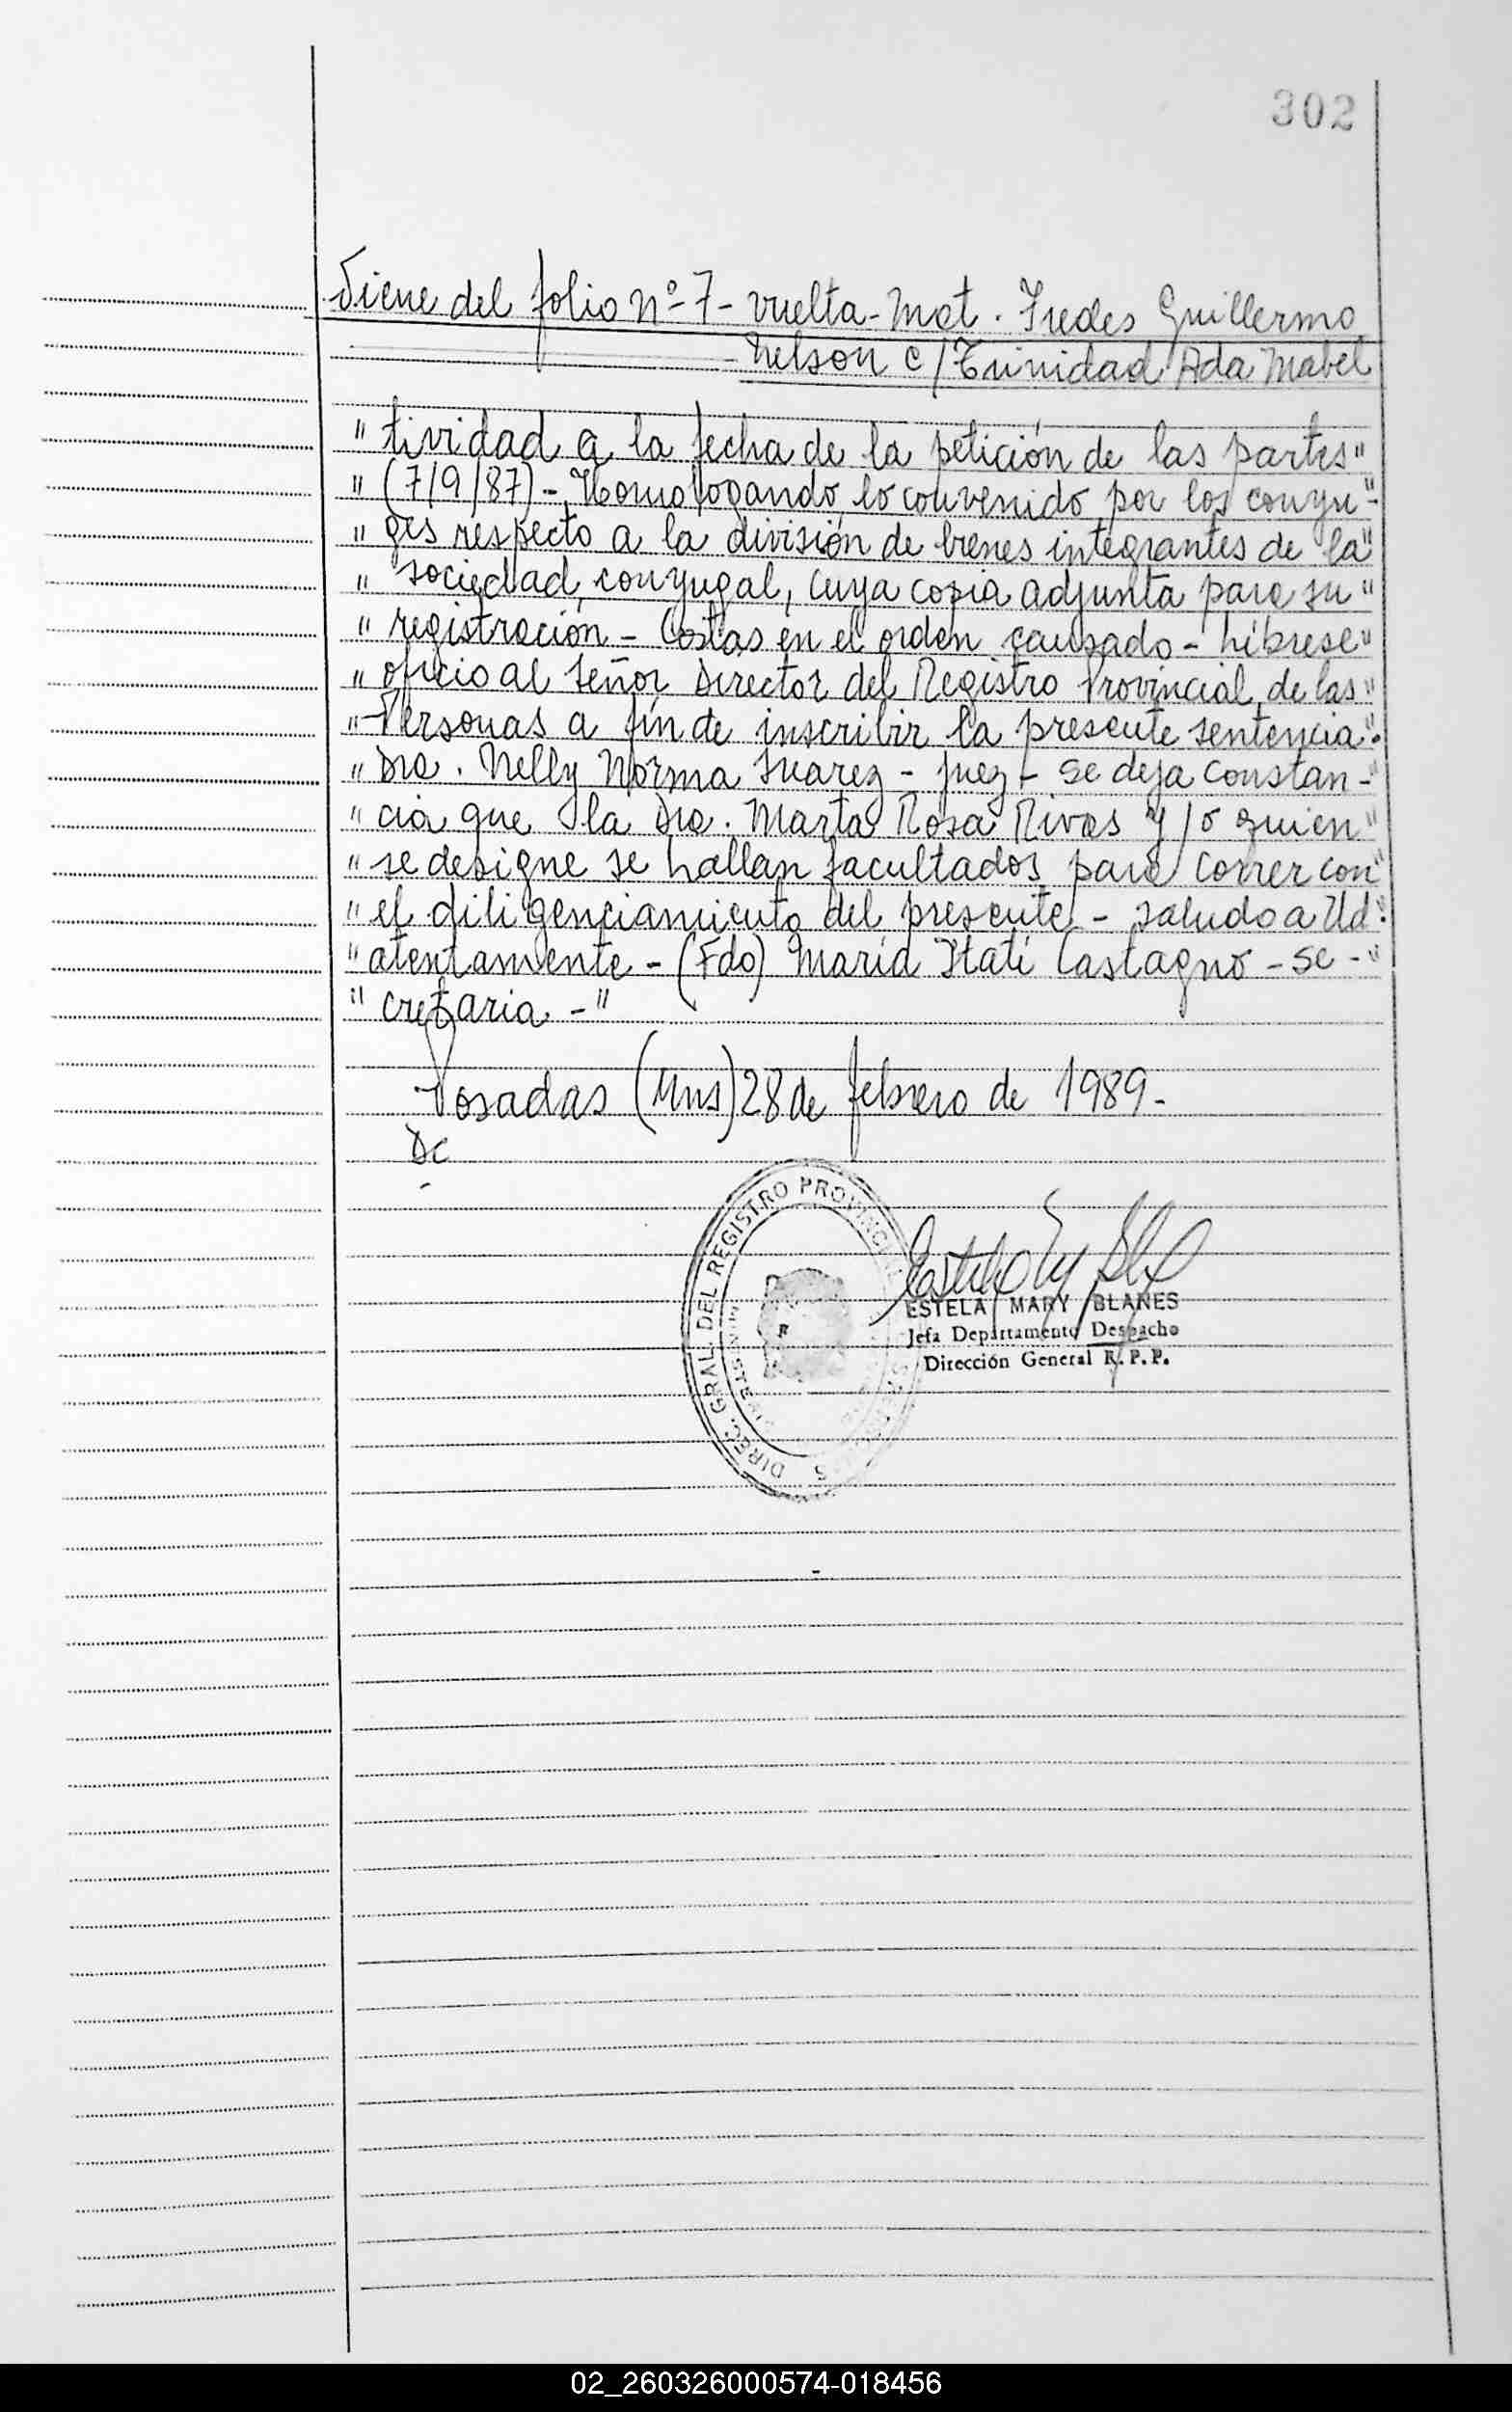 302
Viene del folio nº 7- vuelta- Mat. Fredes Guillermo
Nelson c/ Trinidad Ada Mabel
" tividad a la fecha de la petición de las partes"
" (7/9/87) - Homologando lo convenido por los conyu-"
" ges respecto a la división de bienes integrantes de la"
" sociedad conyugal, cuya copia adjunta para su "
" registración - Costas en el orden causado - Líbrese"
" oficio al Señor Director del Registro Provincial de las"
" Personas a fin de inscribir la presente sentencia."
" Dra. Nelly Norma Suarez - Juez - Se deja constan-"
" cia que la Dra. Marta Rosa Rivas y/o quien"
" se designe se hallan facultados para correr con"
" el diligenciamiento del presente - Saludo a Ud."
" atentamente - (Fdo) María Itatí Castagno - Se -"
" cretaria - "
Posadas (Mns) 28 de febrero de 1989.-
Dc
DIREC. GRAL. DEL REGISTRO PROVINCIAL
ESTELA MARY BLANES
Jefa Departamento Despacho
Dirección General R.P.P.
02_260326000574-018456